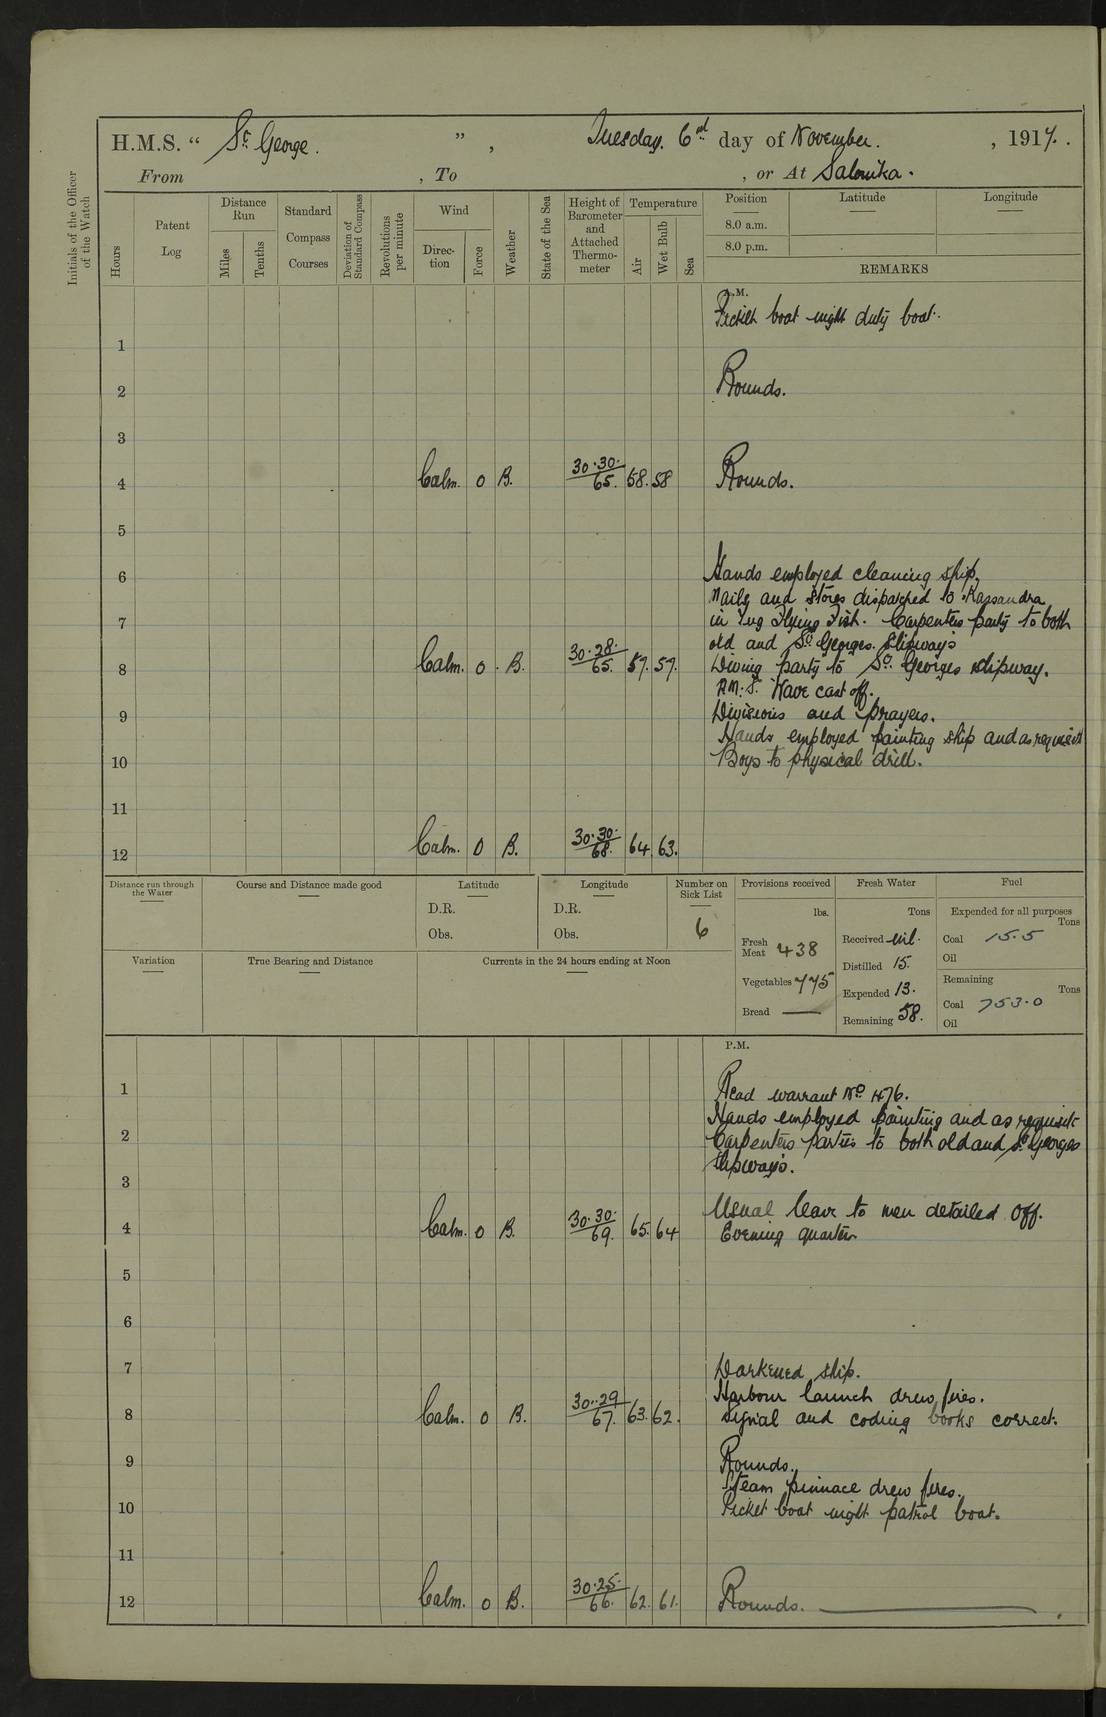 H.M.S. “ St. George. ”, Tuesday. 6th day of November. , 1917.
From , To , or At Salonika.
Initials of the Officer of the Watch
Hours
Patent Log
Distance Run
Miles
Tenths
Standard Compass Courses
Deviation of Standard Compass
Revolutions per minute
Wind
Direc-tion
Force
Weather
State of the Sea
Height of Barometer and Attached Thermo-meter
Temperature
Air
Wet Bulb
Sea
Position
8.0 a.m.
8.0 p.m.
Latitude
Longitude
REMARKS
A.M.
Picket boat night duty boat.
1
2 Rounds.
3
4 Calm. 0 B. 30.30. 65. 58. 58 Rounds.
5
6 Hands employed cleaning ship.
Mails and stores dispatched to Kassandra
7 in Tug Flying Fish. Carpenters party to both
old and St. Georges. Slipways
8 Calm. 0. B. 30.28. 65. 57. 57. Diving party to St. Georges slipway.
Have cast off.
9 Divisions and prayers.
Hands employed painting ship and as requisite
10 Boys to physical drill.
11
12 Calm. 0 B. 30.30. 68. 64. 63.
Distance run through the Water
Course and Distance made good
Latitude
D.R.
Obs.
Longitude
D.R.
Obs.
Number on Sick List
6
Provisions received
lbs.
Fresh Meat 438
Vegetables 775
Bread —
Fresh Water
Tons
Received nil.
Distilled 15.
Expended 13.
Remaining 58.
Fuel
Expended for all purposes
Tons
Coal 15.5
Oil
Remaining
Tons
Coal 753.0
Oil
Variation
True Bearing and Distance
Currents in the 24 hours ending at Noon
P.M.
1 Read warrant No 476.
Hands employed painting and as requisite
2 Carpenters parties to both old and St Georges
slipways.
3
Usual leave to men detailed off.
4 Calm. 0 B. 30.30. 69. 65. 64 Evening quarters
5
6
7 Darkened ship.
Harbour launch drew fires.
8 Calm. 0 B. 30.29 67. 63. 62. Signal and coding books correct.
9 Rounds.
Steam pinnace drew fires.
10 Picket boat night patrol boat.
11
12 Calm. 0 B. 30.25. 66. 62. 61. Rounds.